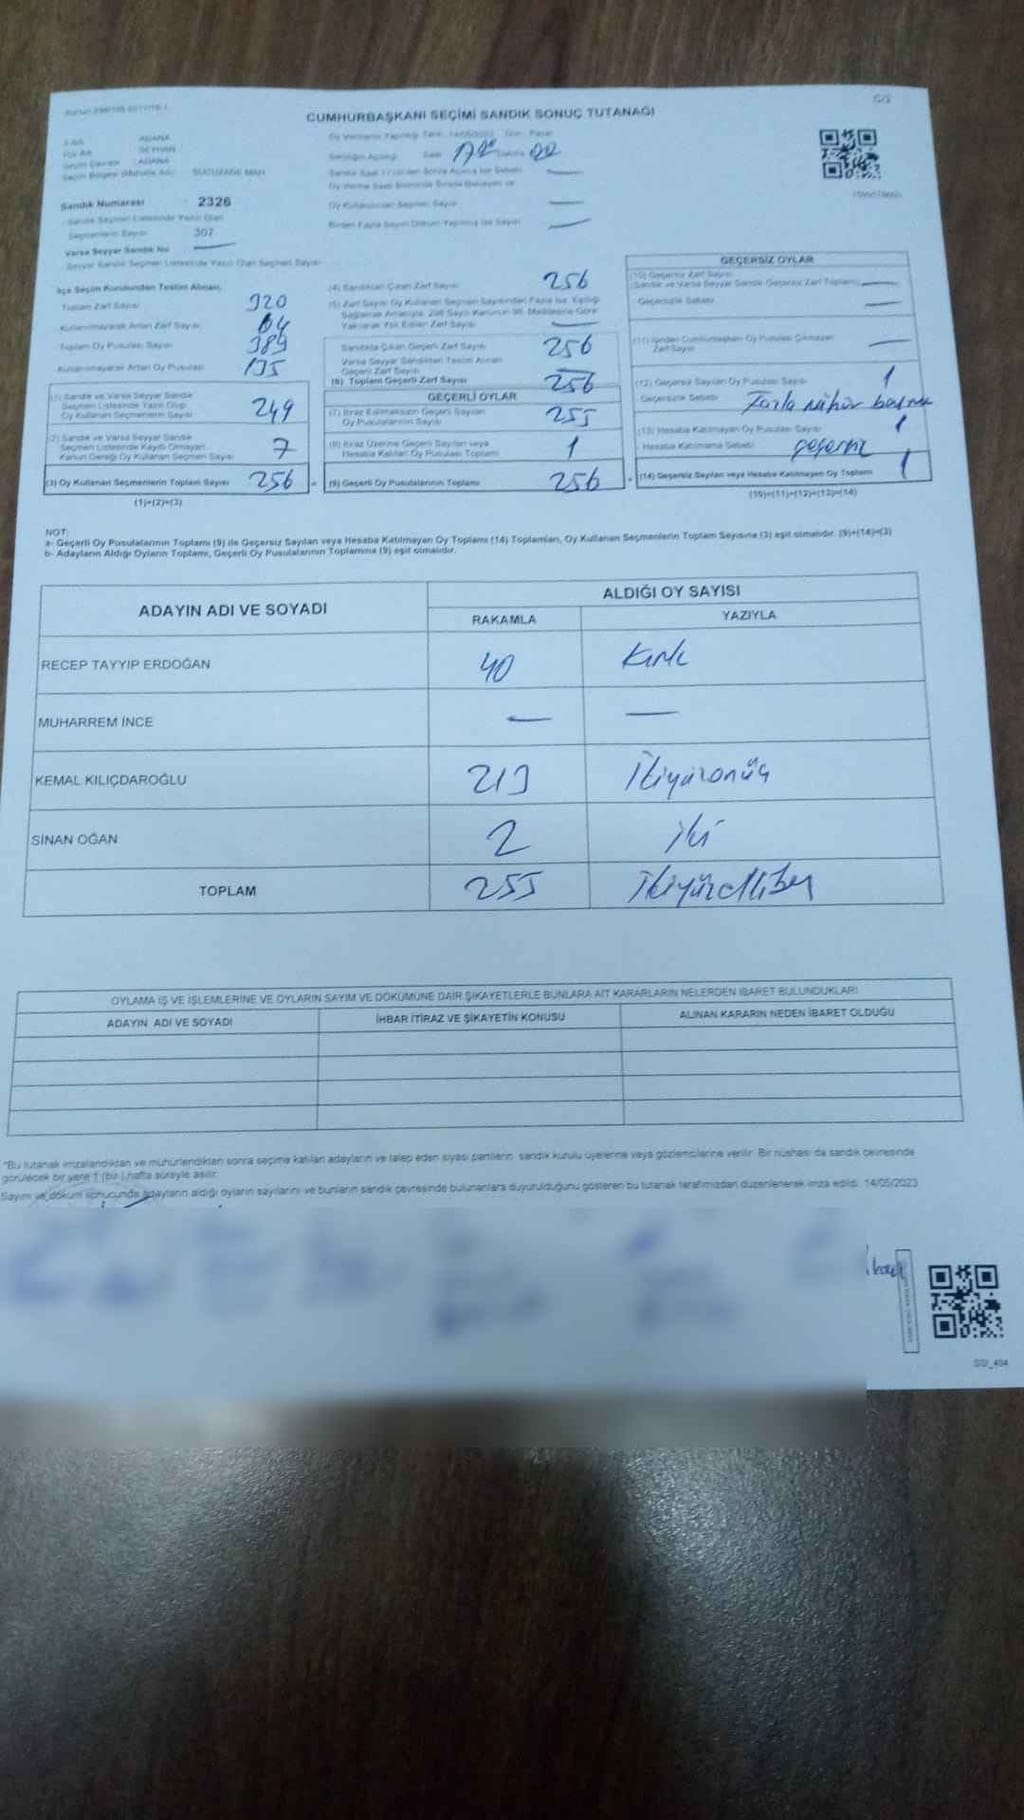 CUMHURBAŞKANI SEÇİMİ SANDIK SONUÇ TUTANAĞI
ADANA
SEYHAN
ADANA
Sandık Numarası 2326
Sandık Seçmen Listesinde Yazılı Olan
Seçmenlerin Sayısı 307
Varsa Seyyar Sandık No
Seyyar Sandık Seçmen Listesinde Yazılı Olan Seçmen Sayısı
Oy Kullanılması Saat 17.00
Birden Fazla Sayım Döküm Yapılmış ise Sayısı
İlçe Seçim Kurulundan Teslim Alınan;
Toplam Zarf Sayısı 320
Kullanılmayarak Artan Zarf Sayısı 64
Toplam Oy Pusulası Sayısı 389
Kullanılmayarak Artan Oy Pusulası 135
(1) Sandık ve Varsa Seyyar Sandık
Seçmen Listesinde Yazılı Olup
Oy Kullanan Seçmenlerin Sayısı 249
(2) Sandık ve Varsa Seyyar Sandık
Seçmen Listesinde Kayıtlı Olmayan
Kanun Gereği Oy Kullanan Seçmen Sayısı 7
(3) Oy Kullanan Seçmenlerin Toplam Sayısı 256
(1)+(2)=(3)
(4) Sandıktan Çıkan Zarf Sayısı 256
(5) Zarf Sayısı Oy Kullanan Seçmen Sayısından Fazla ise, Eşitliği
Sağlamak Amacıyla, 298 Sayılı Kanunun 98. Maddesine Göre
Yakılarak Yok Edilen Zarf Sayısı
Sandıkta Çıkan Geçerli Zarf Sayısı 256
Varsa Seyyar Sandıktan Teslim Alınan
Geçerli Zarf Sayısı
(6) Toplam Geçerli Zarf Sayısı 256
GEÇERLİ OYLAR
(7) İtiraz Edilmeksizin Geçerli Sayılan
Oy Pusulalarının Sayısı 255
(8) İtiraz Üzerine Geçerli Sayılan veya
Hesaba Katılan Oy Pusulası Toplamı 1
(9) Geçerli Oy Pusulalarının Toplamı 256
GEÇERSİZ OYLAR
(10) Geçersiz Zarf Sayısı
(Sandık ve Varsa Seyyar Sandık Geçersiz Zarf Toplamı)
Geçersizlik Sebebi
(11) İçinden Cumhurbaşkanı Oy Pusulası Çıkmayan
Zarf Sayısı
(12) Geçersiz Sayılan Oy Pusulası Sayısı 1
Geçersizlik Sebebi Fazla mühür
(13) Hesaba Katılmayan Oy Pusulası Sayısı 1
Hesaba Katılmama Sebebi geçersiz
(14) Geçersiz Sayılan veya Hesaba Katılmayan Oy Toplamı 1
(10)+(11)+(12)+(13)=(14)
NOT:
a- Geçerli Oy Pusulalarının Toplamı (9) ile Geçersiz Sayılan veya Hesaba Katılmayan Oy Toplamı (14) Toplamları, Oy Kullanan Seçmenlerin Toplam Sayısına (3) eşit olmalıdır. (9)+(14)=(3)
b- Adayların Aldığı Oyların Toplamı, Geçerli Oy Pusulalarının Toplamına (9) eşit olmalıdır.
ADAYIN ADI VE SOYADI ALDIĞI OY SAYISI
RAKAMLA YAZIYLA
RECEP TAYYIP ERDOĞAN 40 Kırk
MUHARREM İNCE
KEMAL KILIÇDAROĞLU 213 İkiyüzonüç
SİNAN OĞAN 2 iki
TOPLAM 255 ikiyüzellibeş
OYLAMA İŞ VE İŞLEMLERİNE VE OYLARIN SAYIM VE DÖKÜMÜNE DAİR ŞİKAYETLERLE BUNLARA AİT KARARLARIN NELERDEN İBARET BULUNDUKLARI
ADAYIN ADI VE SOYADI İHBAR İTİRAZ VE ŞİKAYETİN KONUSU ALINAN KARARIN NEDEN İBARET OLDUĞU
*Bu tutanak imzalandıktan ve mühürlendikten sonra seçime katılan adayların ve talep eden siyasi partilerin sandık kurulu üyelerine veya gözlemcilerine verilir. Bir nüshası da sandık çevresinde
görülecek bir yere 1 (bir) hafta süreyle asılır.
Sayım ve döküm sonucunda adayların aldığı oyların sayılarını ve bunların sandık çevresinde bulunanlara duyurulduğunu gösteren bu tutanak tarafımızdan düzenlenerek imza edildi. 14/05/2023